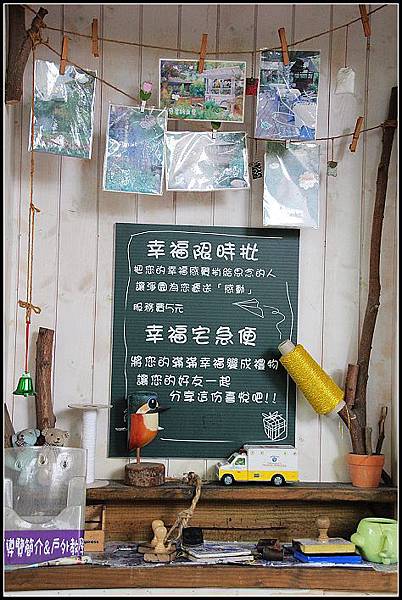 幸福限時批
把您的幸福感觸捎給思念的人
讓淨園為您遞送「感動」
服務費5元
幸福宅急便
將您的滿滿幸福變成禮物
讓您的好友一起
分享這份喜悅吧!!
導覽簡介&戶外教